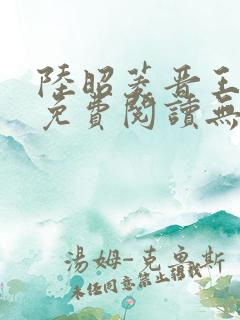 陸昭菱晉王
免費閱讀無
湯姆-克魯斯
未經同意禁止轉載